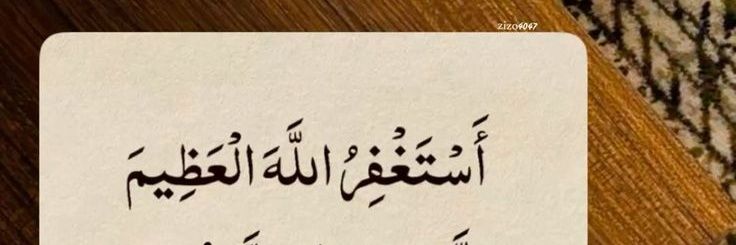 zizo4047
أَسْتَغْفِرُ اللَّهَ الْعَظِيمَ